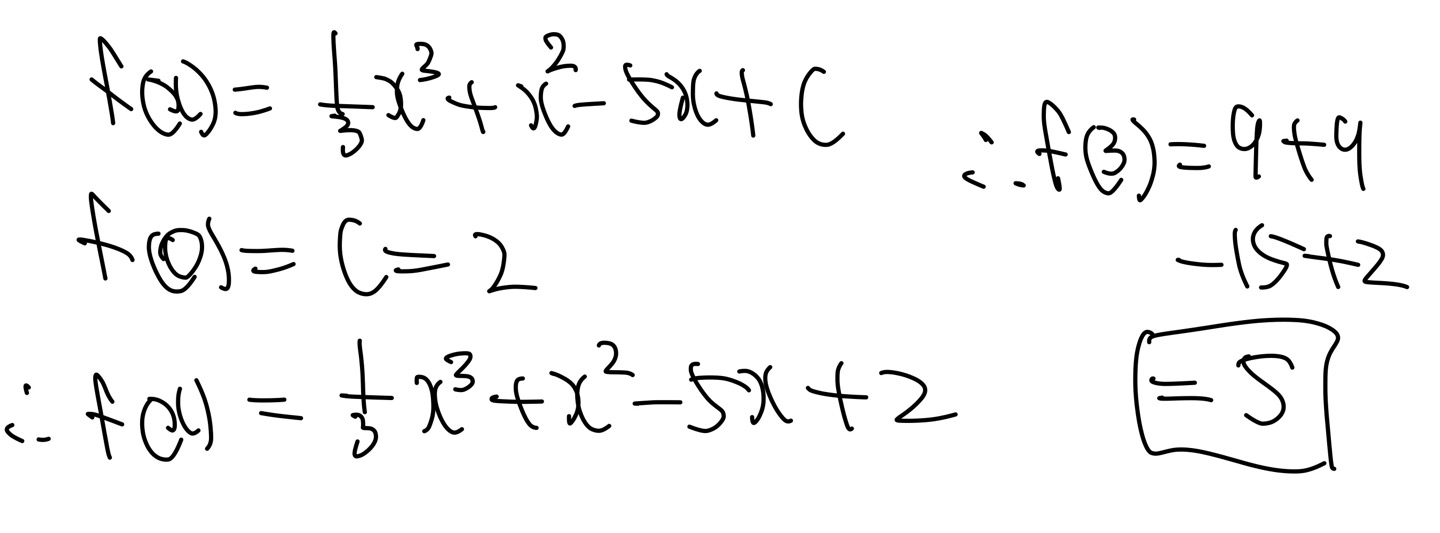 f(x) = 1/3 x³ + x² - 5x + C
f(0) = C = 2
∴ f(x) = 1/3 x³ + x² - 5x + 2
∴ f(3) = 9 + 9
- 15 + 2
= 5